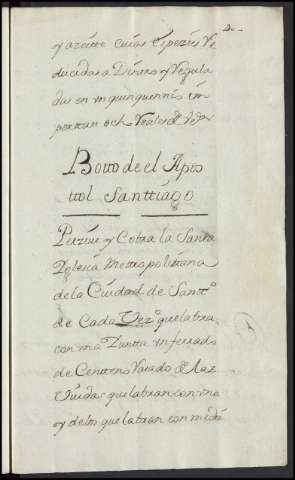 y azeitte cuias Espezies Re
ducidas a Dinero y Regula
das en un quinquennio im
porttan ocho Reales de Vn
Botto de el Apos
ttol Santtiago
Perziue y Cobra la Santa
Yglesia Mettropolittana
de la Ciudad de Santt.º
de Cada Vez.º que labra
con una Juntta un ferrado
de Centteno Vasado de Las
Viudas que labran con una
y de los que labran con media